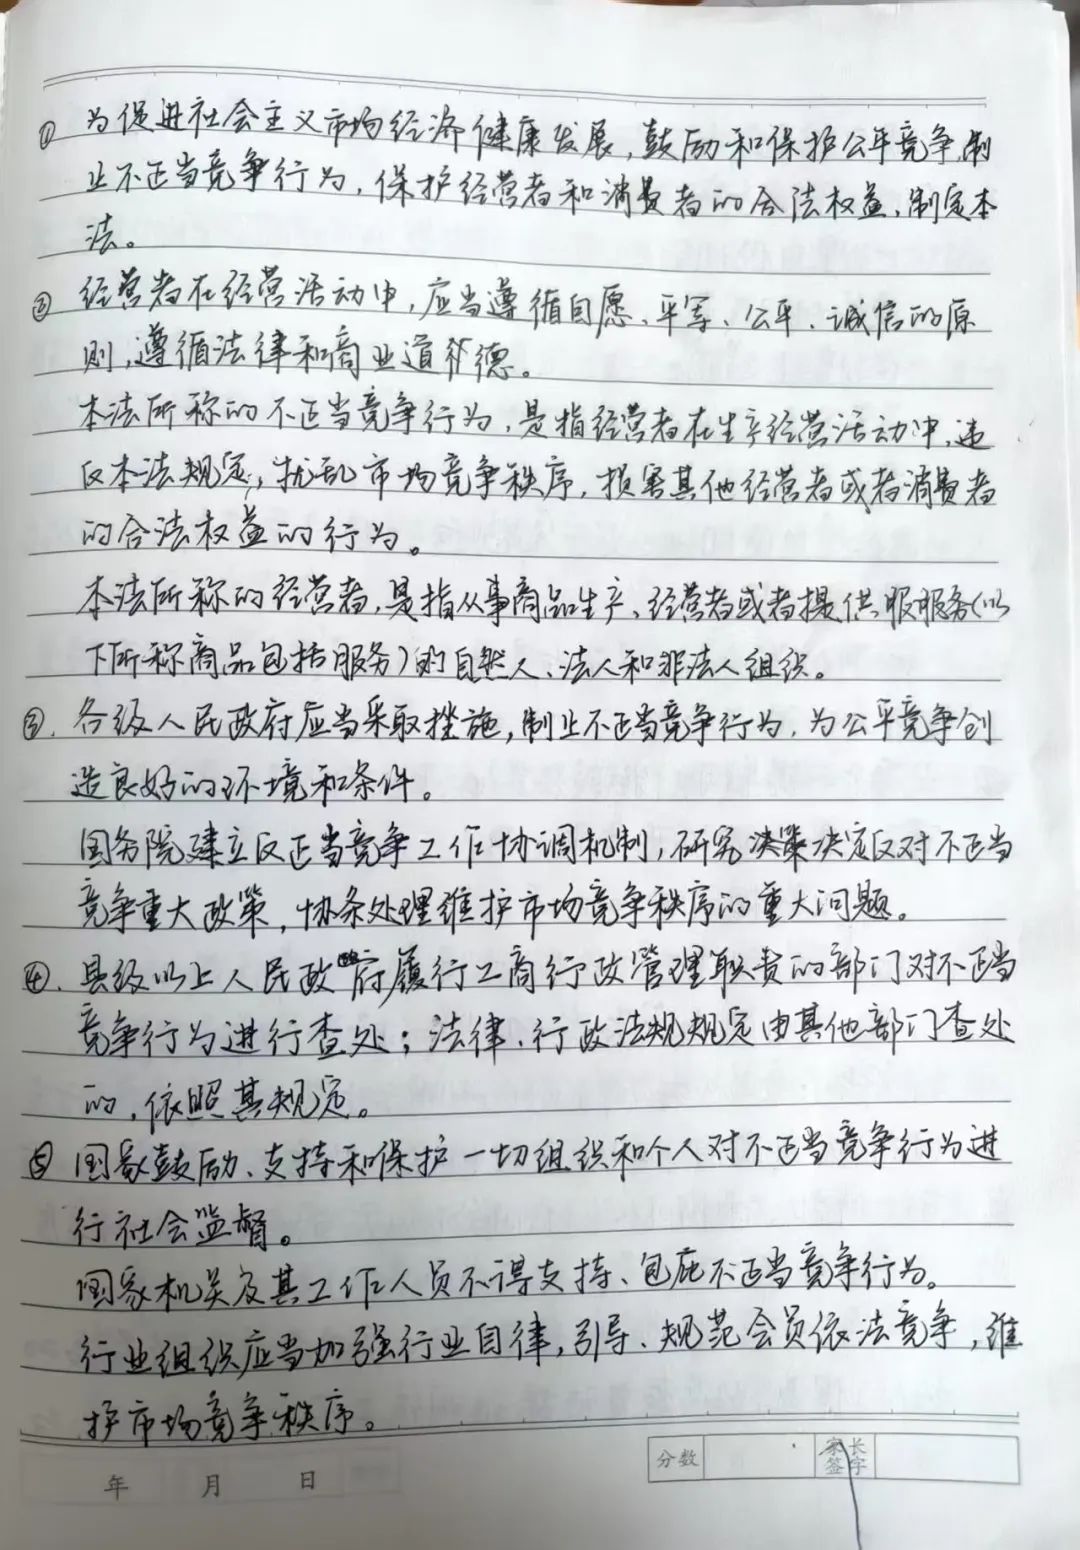 ① 为促进社会主义市场经济健康发展,鼓励和保护公平竞争,制
止不正当竞争行为,保护经营者和消费者的合法权益,制定本
法。
② 经营者在经营活动中,应当遵循自愿、平等、公平、诚信的原
则,遵循法律和商业道德。
本法所称的不正当竞争行为,是指经营者在生产经营活动中,违
反本法规定,扰乱市场竞争秩序,损害其他经营者或者消费者
的合法权益的行为。
本法所称的经营者,是指从事商品生产、经营者或者提供服服务(以
下所称商品包括服务)的自然人、法人和非法人组织。
③. 各级人民政府应当采取措施,制止不正当竞争行为,为公平竞争创
造良好的环境和条件。
国务院建立反正当竞争工作协调机制,研究决策决定反对不正当
竞争重大政策,协条处理维护市场竞争秩序的重大问题。
④. 县级以上人民政府履行工商行政管理职责的部门对不正当
竞争行为进行查处;法律、行政法规规定由其他部门查处
的,依照其规定。
⑤ 国家鼓励、支持和保护一切组织和个人对不正当竞争行为进
行社会监督。
国家机关及其工作人员不得支持、包庇不正当竞争行为。
行业组织应当加强行业自律,引导、规范会员依法竞争,维
护市场竞争秩序。
年 月 日 分数 家长签字